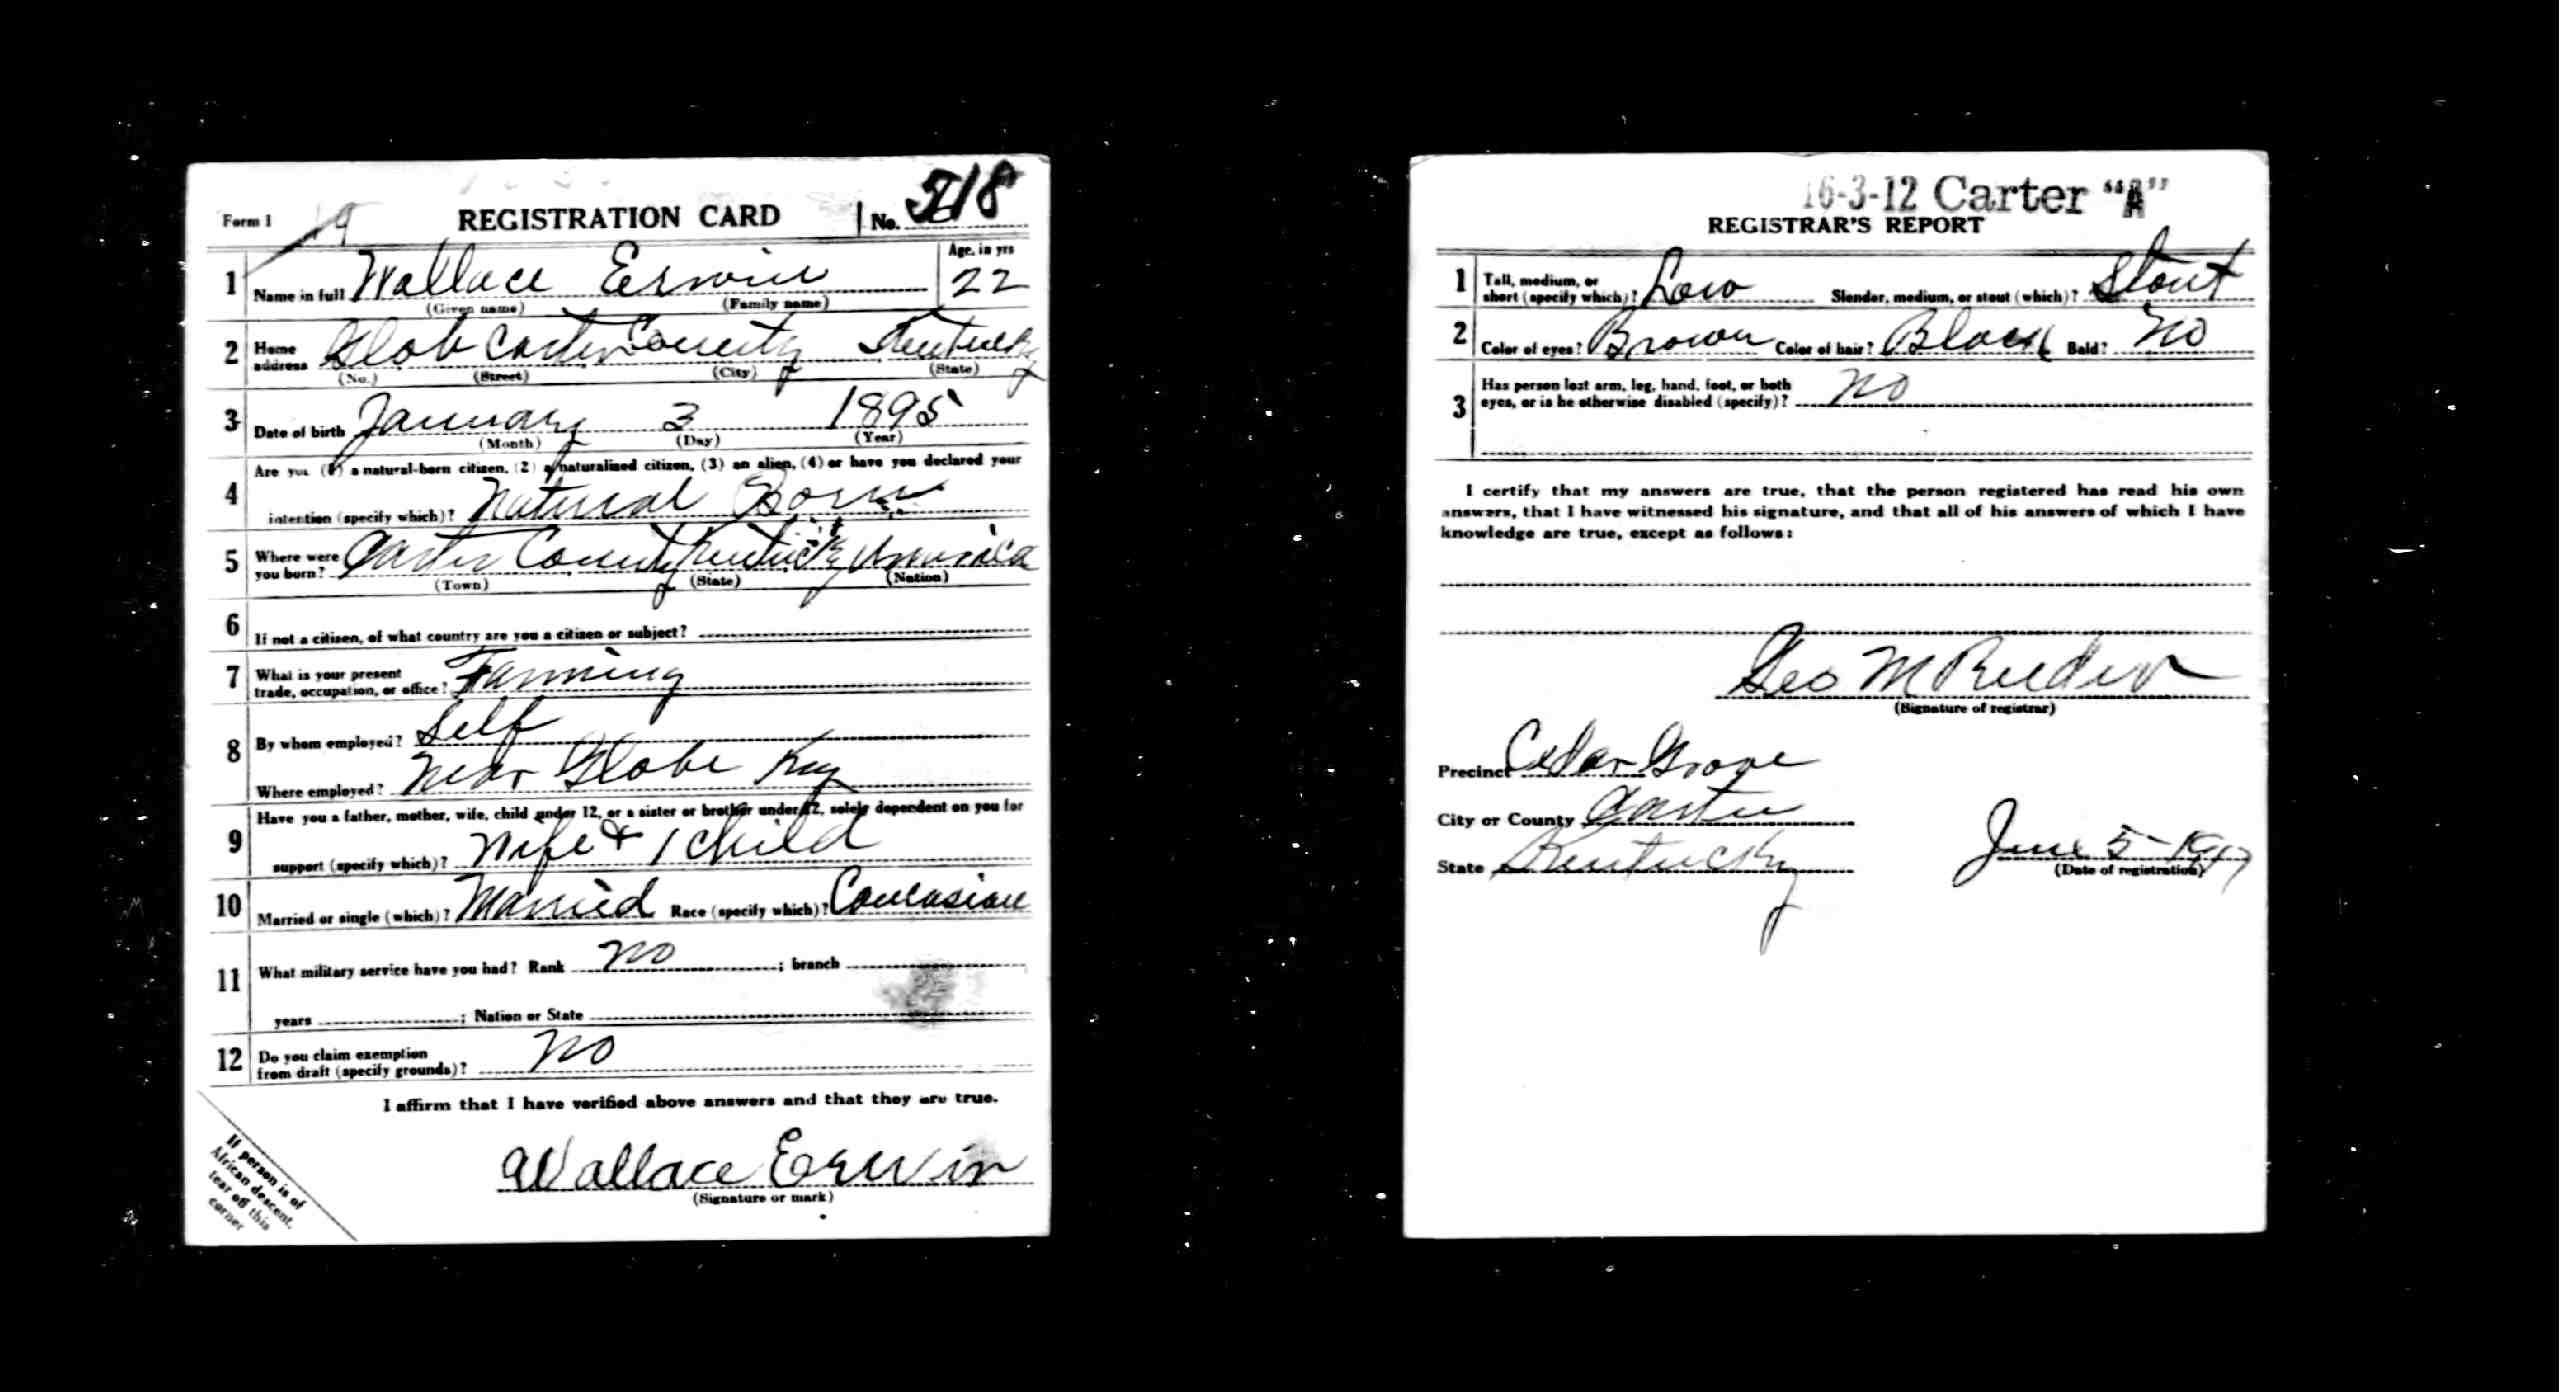 Form 1 REGISTRATION CARD No. 518
1 Name in full Wallace Erwin Age, in yrs 22
(Given name) (Family name)
2 Home address Glob Carter County Kentucky
(No.) (Street) (City) (State)
3 Date of birth January 3 1895
(Month) (Day) (Year)
4 Are you (1) a natural-born citizen, (2) a naturalized citizen, (3) an alien, (4) or have you declared your
intention (specify which)? Natural Born
5 Where were you born? Carter County Kentucky America
(Town) (State) (Nation)
6 If not a citizen, of what country are you a citizen or subject?
7 What is your present
trade, occupation, or office? Farming
8 By whom employed? Self
Where employed? Near Globe Ky
9 Have you a father, mother, wife, child under 12, or a sister or brother under 12, solely dependent on you for
support (specify which)? Wife & 1 child
10 Married or single (which)? Married Race (specify which)? Caucasian
11 What military service have you had? Rank no ; branch
years ; Nation or State
12 Do you claim exemption
from draft (specify grounds)? no
I affirm that I have verified above answers and that they are true.
Wallace Erwin
(Signature or mark)
If person is of
African descent,
tear off this
corner
16-3-12 Carter "A"
REGISTRAR'S REPORT
1 Tall, medium, or
short (specify which)? Low Slender, medium, or stout (which)? Stout
2 Color of eyes? Brown Color of hair? Black Bald? no
3 Has person lost arm, leg, hand, foot, or both
eyes, or is he otherwise disabled (specify)? no
I certify that my answers are true, that the person registered has read his own
answers, that I have witnessed his signature, and that all of his answers of which I have
knowledge are true, except as follows:
Geo M Reeder
(Signature of registrar)
Precinct Cedar Grove
City or County Carter
State Kentucky
June 5 - 1917
(Date of registration)